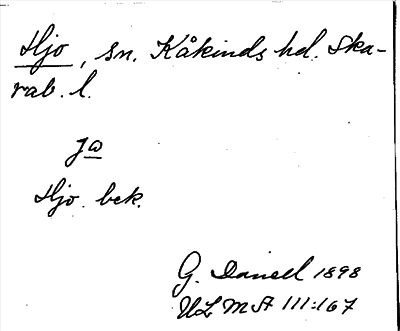 Hjo, sn. Kåkinds hd. Ska-
rab. l.
Ja
Hjo bek.
G. Daniell 1898
ULMA 111:167